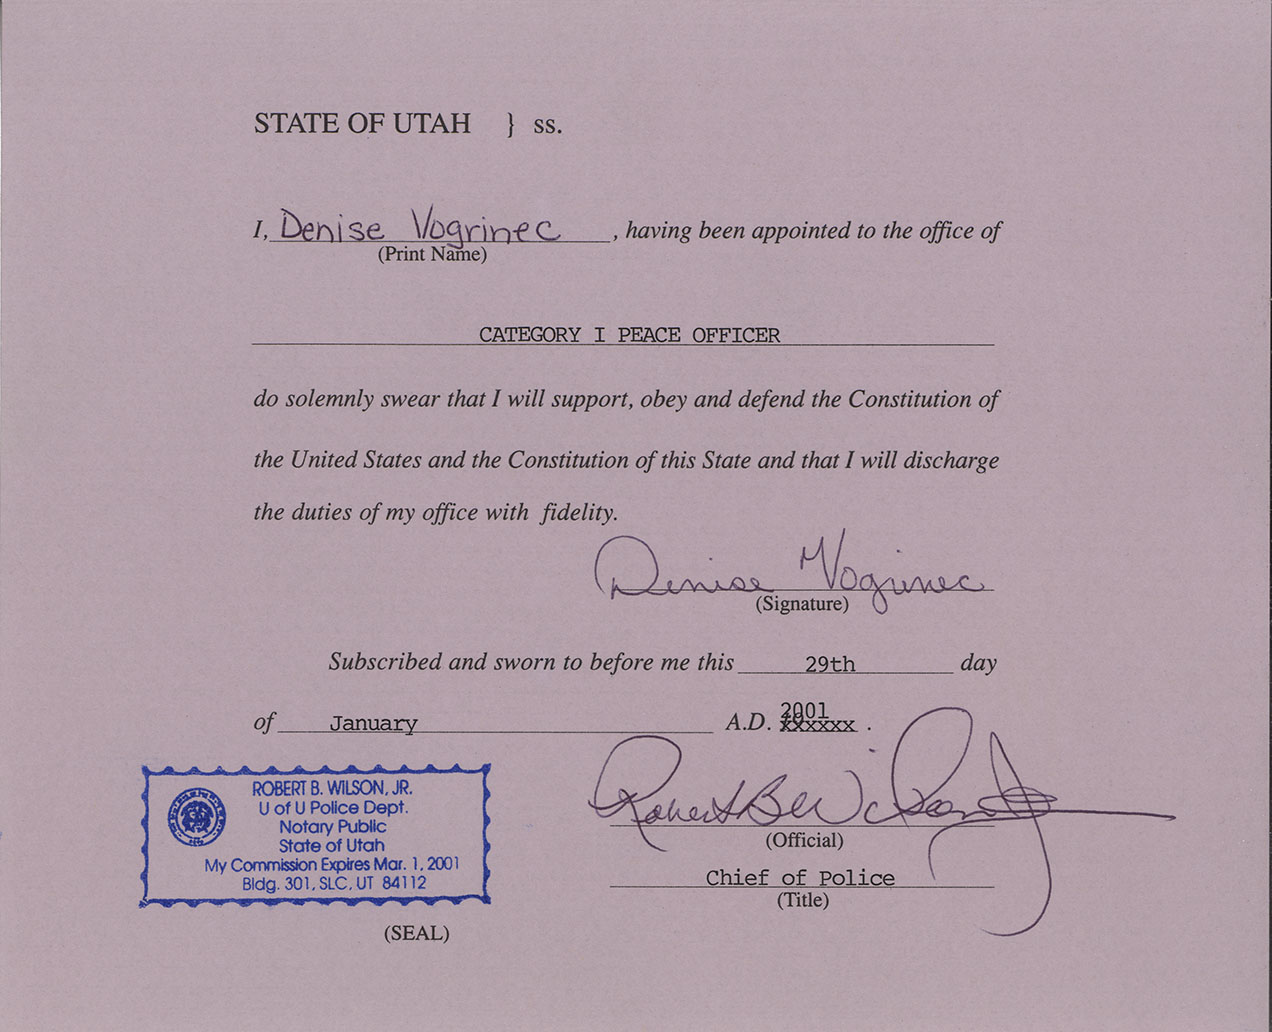 STATE OF UTAH } ss.
I, Denise Vogrinec, having been appointed to the office of
(Print Name)
CATEGORY I PEACE OFFICER
do solemnly swear that I will support, obey and defend the Constitution of
the United States and the Constitution of this State and that I will discharge
the duties of my office with fidelity.
Denise Vogrinec
(Signature)
Subscribed and sworn to before me this 29th day
2001
of January A.D. xxxxxx .
ROBERT B. WILSON, JR.
U of U Police Dept.
Notary Public
State of Utah
My Commission Expires Mar. 1, 2001
Bldg. 301, SLC, UT 84112
(SEAL)
Robert B Wilson Jr
(Official)
Chief of Police
(Title)